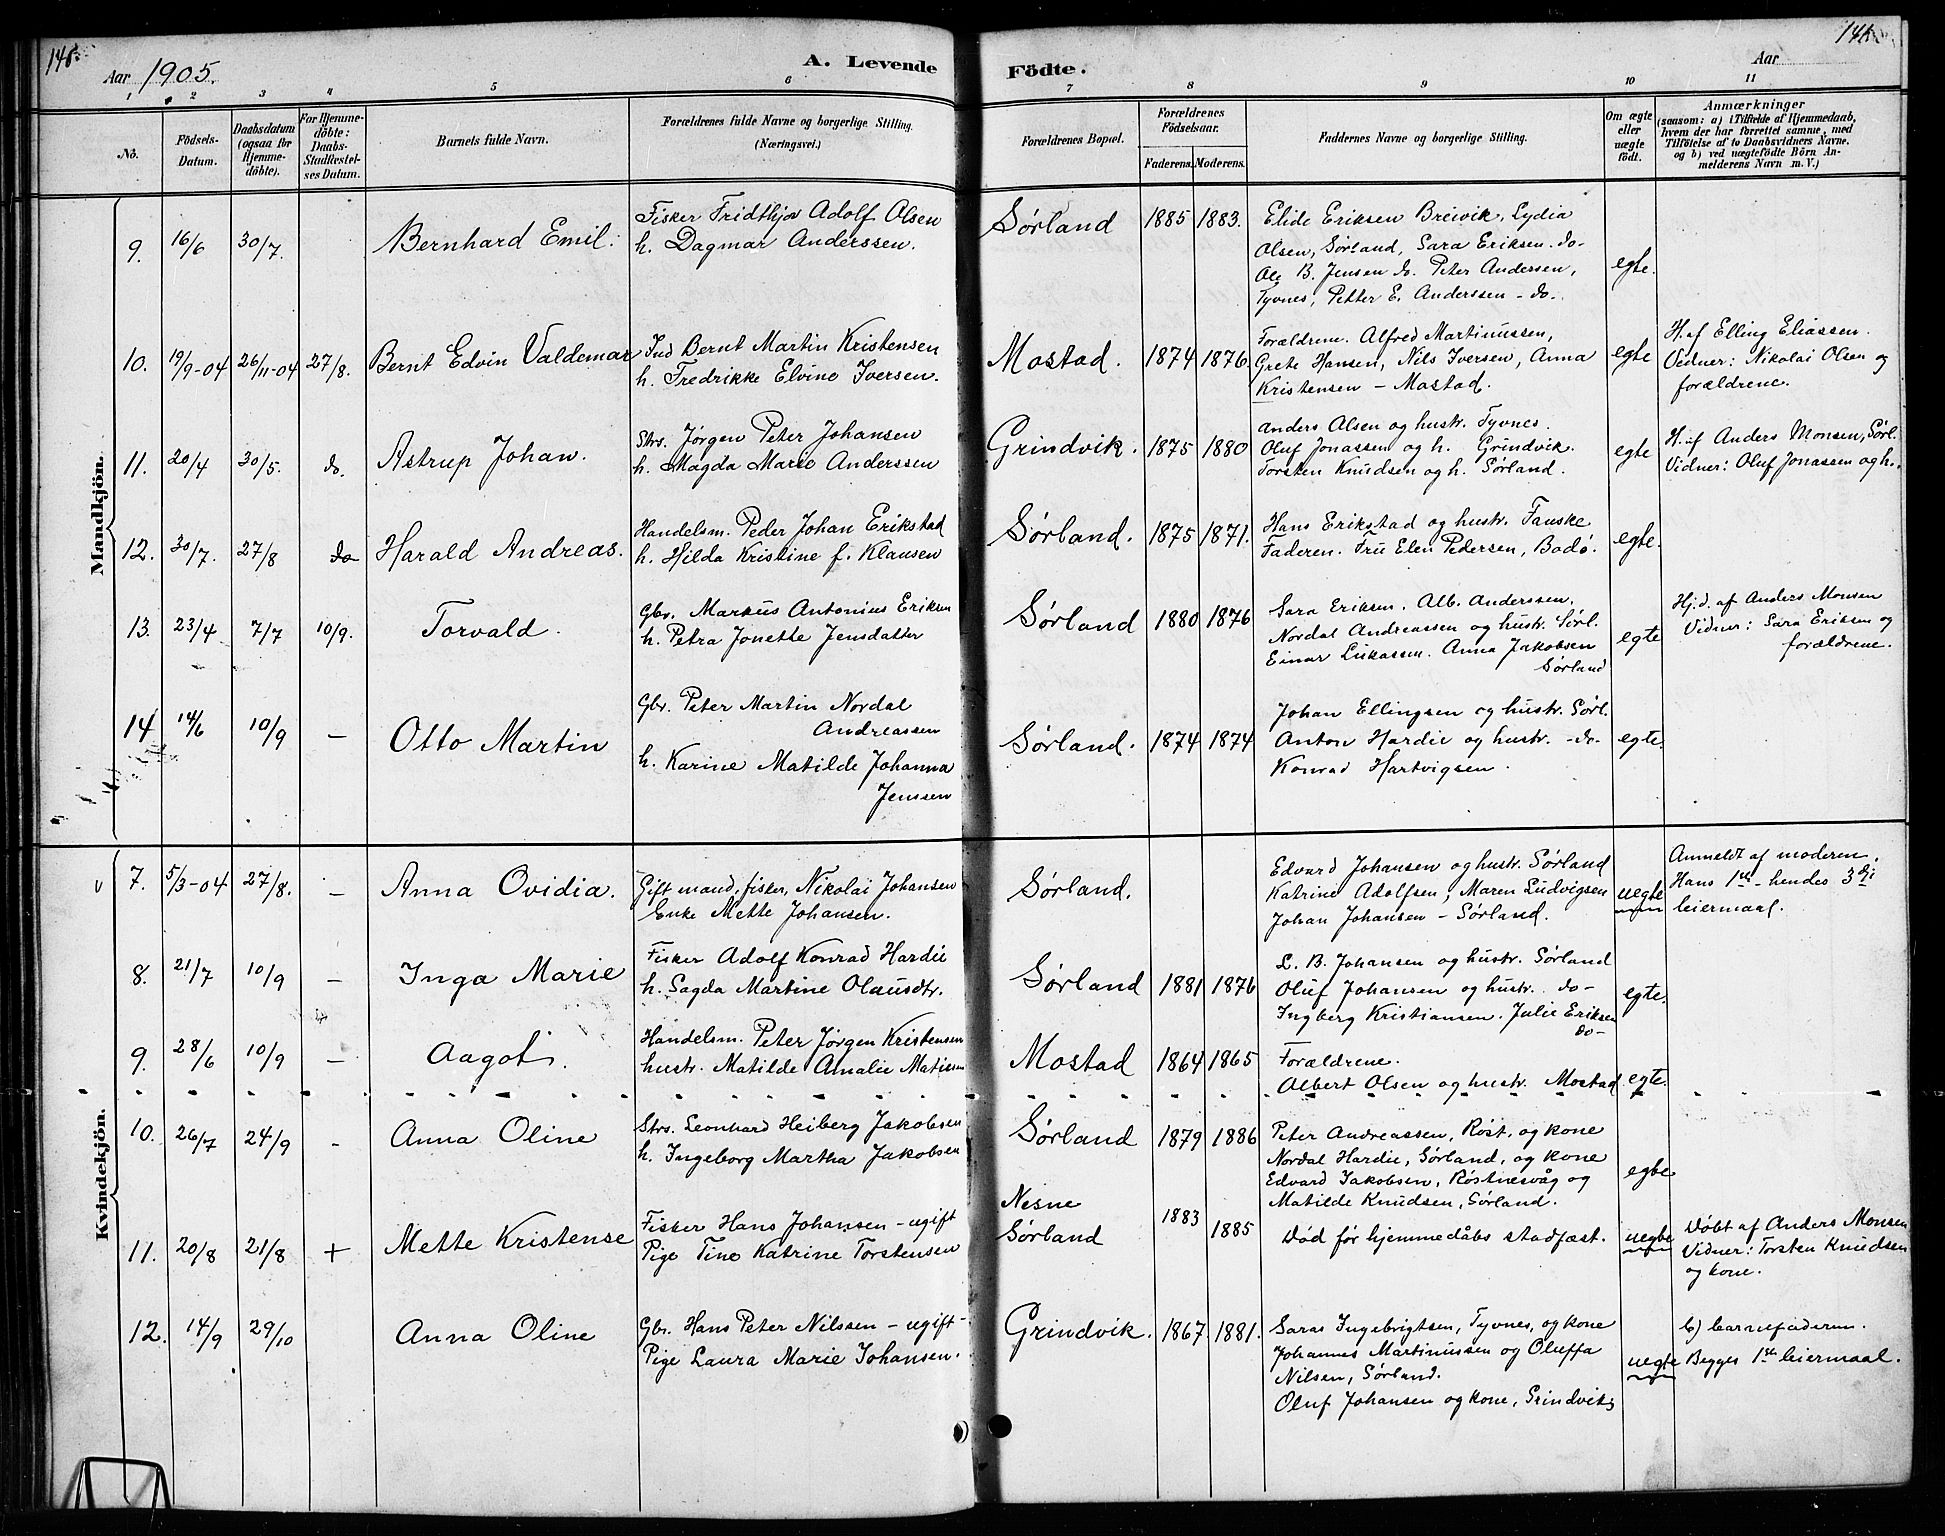 Aar 1905.
A. Levende
Födte.
Aar
1 2 3 4 5 6 7 8 9 10 11
No.
Födsels-
Datum.
Daabsdatum
(ogsaa for
Hjemme-
döbte).
For Hjemme-
döbte:
Daabs-
Stadfæstel-
ses Datum.
Barnets fulde Navn.
Forældrenes fulde Navne og borgerlige Stilling.
(Næringsvei.)
Forældrenes Bopæl.
Forældrenes
Födselsaar.
Faderens. Moderens.
Faddernes Navne og borgerlige Stilling.
Om ægte
eller
uægte
født.
Anmærkninger
(saasom: a) i Tilfælde af Hjemmedaab,
hvem der har forrettet samme, med
Tilföielse af to Daabsvidners Navne,
og b) ved uægtefödte Börn An-
melderens Navn m. V.)
Mandkjön.
9. 16/6 30/7. Bernhard Emil.
Fisker Fridthjov Adolf Olsen
h. Dagmar Anderssen.
Sørland 1885 1883.
Elide Eriksen Breivik, Lydia
Olsen, Sørland, Sara Eriksen. do-
Ole B. Jensen do. Peter Andersen,
Tyvnes, Petter E. Anderssen - do.
egte.
10. 19/9-04 26/11-04 27/8. Bernt Edvin Valdemar
Ind Bernt Martin Kristensen
h. Fredrikke Elvine Iversen.
Mostad. 1874 1876.
Forældrene. Alfred Martinussen,
Grete Hansen, Nils Iversen, Anna
Kristensen - Mostad.
egte
H. af Elling Eliassen.
Vidner: Nikolai Olsen og
forældrene.
11. 20/4 30/5. do. Astrup Johan.
Strs. Jørgen Peter Johansen
h. Magda Marie Anderssen
Grindvik. 1875 1880
Anders Olsen og hustr. Tyvnes.
Oluf Jonassen og h. Grindvik.
Torsten Knudsen og h. Sørland.
egte
H. af Anders Monsen, Sørl.
Vidner: Oluf Jonassen og h.
12. 30/7. 27/8 do Harald Andreas.
Handelsm. Peder Johan Erikstad
h. Hilda Kristine f. Klausen
Sørland. 1875 1871.
Hans Erikstad og hustr. Fauske
Faderen. Fru Elen Pedersen, Bodø.
egte.
13. 23/4 7/7 10/9. Torvald.
Gbr. Markus Antonius Eriksen
h. Petra Jonette Jensdatter
Sørland 1880 1876
Sara Eriksen. Alb. Anderssen.
Nordal Andreassen og hustr. Sørl.
Einar Lukassen. Anna Jakobsen
Sørland
egte
Hj.d. af Anders Monsen
Vidner: Sara Eriksen og
forældrene.
14 14/6 10/9 - Otto Martin
Gbr. Peter Martin Nordal
Andreassen
h. Karine Matilde Johanna
Jenssen
Sørland. 1874 1874
Johan Ellingsen og hustr. Sørl.
Anton Hardie og hustr. -do-
Konrad Hartvigsen.
egte.
Kvindekjön.
v 7. 5/3-04 27/8. - Anna Ovidia.
Gift mand, fisker, Nikolai Johansen
Enke Mette Johansen.
Sørland.
Edvard Johansen og hustr. Sørland
Katrine Adolfsen, Maren Ludvigsen
Johan Johansen - Sørland.
uegte
Anmeldt af moderen.
Hans 1ste - hendes 3die
leiermaal.
8. 21/7 10/9 - Inga Marie
Fisker Adolf Konrad Hardie
h. Sagda Martine Olausdtr.
Sørland 1881 1876
L. B. Johansen og hustr. Sørland
Oluf Johansen og hustr. do-
Ingberg Kristiansen. Julie Eriksen
do-
egte.
9. 28/6 10/9 - Aagot.
Handelsm. Peter Jørgen Kristensen
hustr. Matilde Amalie Matissen
Mostad 1864 1865
Forældrene.
Albert Olsen og hustr. Mostad
egte.
10. 26/7 24/9 - Anna Oline
Strs. Leonhard Heiberg Jakobsen
h. Ingeborg Martha Jakobsen
Sørland 1879 1886
Peter Andreassen, Røst, og kone
Nordal Hardie, Sørland, og kone
Edvard Jakobsen, Røstnesvåg og
Matilde Knudsen, Sørland.
egte
11. 20/8 21/8 + Mette Kristense
Fisker Hans Johansen - ugift
Pige Tine Katrine Torstensen
Nesne
Sørland
1883 1885
Død før hjemmedåbs stadfæst.
uegte
Døbt af Anders Monsen
Vidner: Torsten Knudsen
og kone.
12. 14/9 29/10 Anna Oline
Gbr. Hans Peter Nilssen - ugift -
Pige Laura Marie Johansen.
Grindvik. 1867. 1881.
Saras Ingebrigtsen, Tyvnes, og kone
Johannes Martinussen og Oluffa
Nilsen, Sørland.
Oluf Johansen og kone, Grindvik
uegte
b) barnefaderen.
Begges 1ste leiermaal.